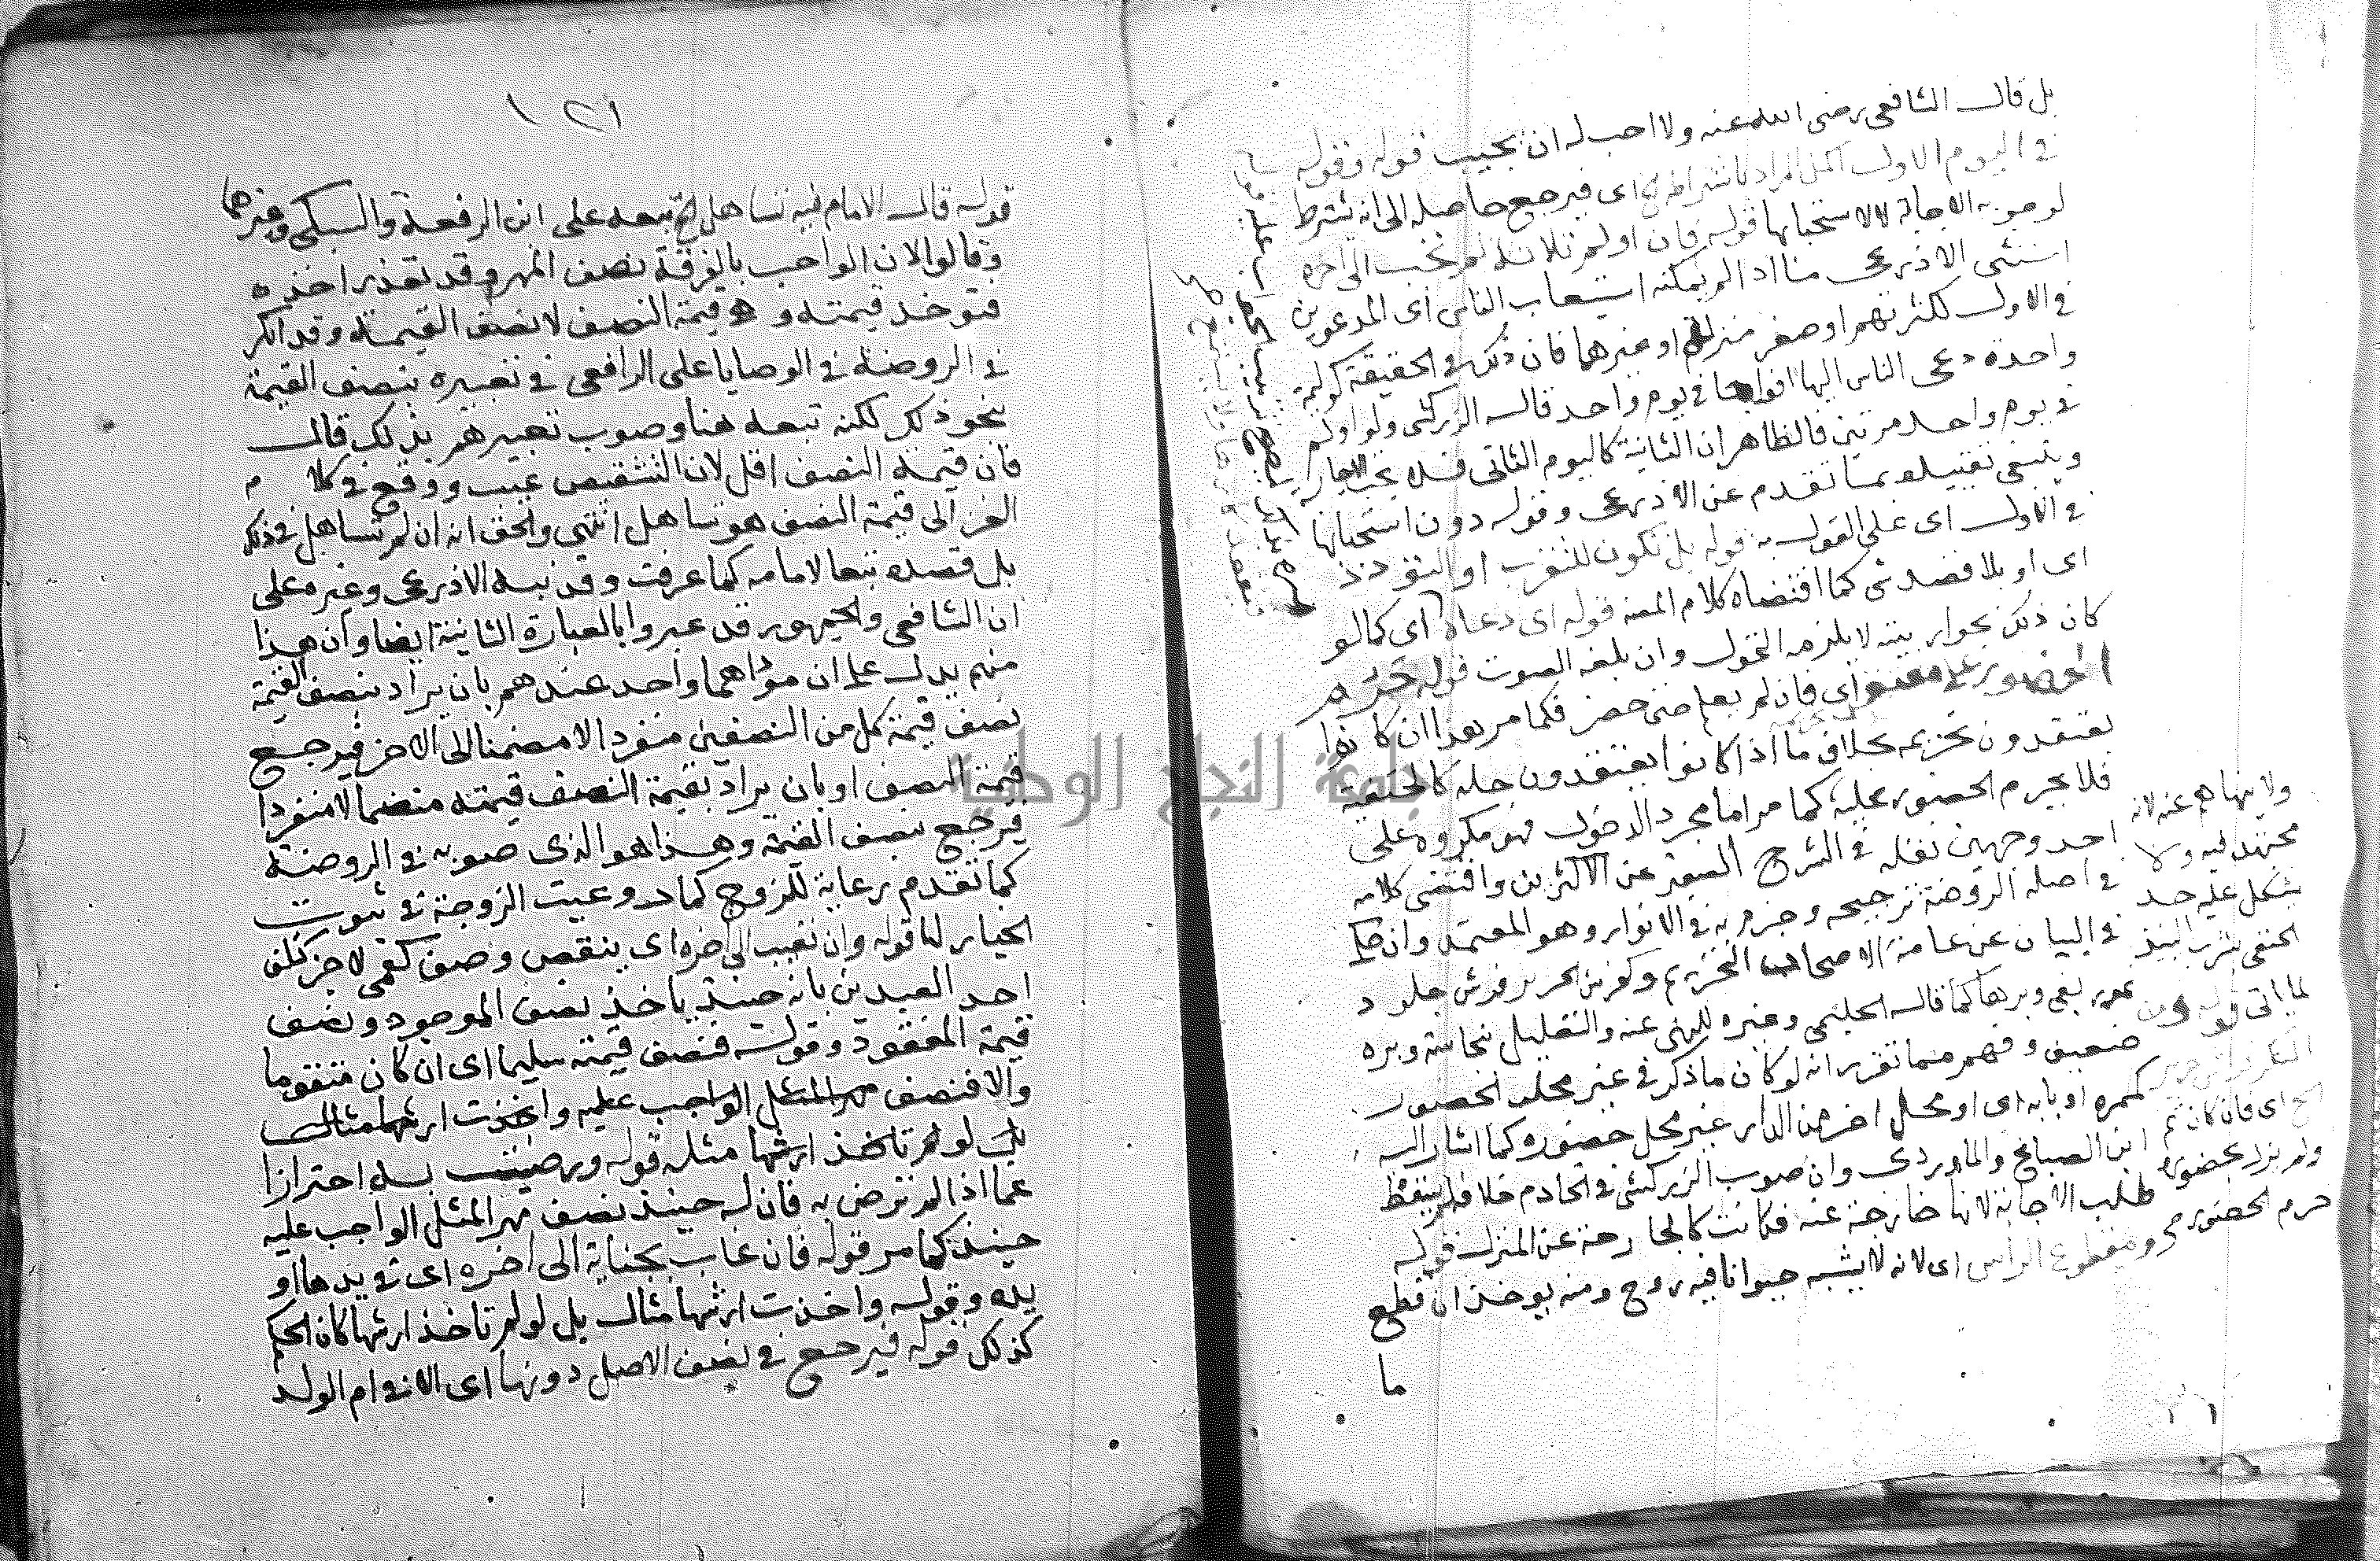 بل قال الشافعي رضي الله عنه ولا احب له ان يجيب قوله وقوله
في اليوم الاول المراد باشتراطه اي فيرجع حاصله الى انه تشترط
لوجوبه الاجابة لا لاستحبابها قوله فان اولم ثلاثة لم تجب الى اخره
استثنى الاذرعي ما اذا لم يمكنه استيعاب الناس اي المدعوين
في الاول لكثرتهم او صغر منزله او غيرهما فان ذلك في الحقيقة كوليمة
واحدة دعى الناس اليها افواجا في يوم واحد قال الزركشي ولو اولم
في يوم واحد مرتين فالظاهر ان الثانية كاليوم الثاني فلا تجب الاجابة
وينبغي تقييده بما تقدم عن الاذرعي وقوله دون استحبابها
في الاول اي على القول به قوله بل تكون للتقرب او التودد
اي او بلا قصد شي كما اقتضاه كلام المص قوله اي دعاه اي كما لو
كان ذلك بجوار بيته لا يلزمه التحول وان بلغه الصوت قوله حرم
الحضور على معتقد اي فان لم يعلم حتى حضر فكما مر هذا ان كانوا
يعتقدون تحريمه بخلاف ما اذا كانوا يعتقدون حله كالحنفية
فلا يحرم الحضور عليه كما مر اما مجرد الدخول فهو مكروه على
احد وجهين نقله في الشرح الصغير عن الاكثرين واقتضى كلامه
في اصله الروضة ترجيحه وجزم به في الانوار وهو المعتمد وان حكى
في البيان عن عامة الاصحاب التحريم وكفرش الحرير فرش جلود
نمور بقي وبرها كما قاله الحليمي وغيره للنهي عنه والتعليل بنجاسة وبره
ضعيف وفهم مما تقرر انه لو كان ما ذكر في غير محل الحضور
كممره او بابه اي او محل اخر من الدار غير محل حضوره كما اشار اليه
ابن الصباغ والماوردي وان صوب الزركشي في الخادم خلافه لم يسقط
طلب الاجابة لانها خارجة عنه فكانت كالخارجة عن المنزل قوله
ومقطوع الراس اي لانه لا يشبه حيوانا فيه روح ومنه يوخذ ان قطع
ما
ولا ينهاهم عنه لانه
مجتهد فيه ولا
يشكل عليه حد
الحنفي بشرب النبيذ
لما اتي قوله ومن
المنكر فراش حرير
الخ اي فان كان ثم
ولم يزل بحضوره
حرم الحضور
١٢١
قوله قال الامام فيه تساهل الخ تبعه على ابن الرفعة والسبكي وغيرهما
وقالوا لان الواجب بالفرقة نصف المهر وقد تعذر اخذه
فتوخذ قيمته وهو قيمة النصف لا نصف القيمة وقد انكر
في الروضة في الوصايا على الرافعي في تعبيره بنصف القيمة
بنحو ذلك لكنه تبعه هنا وصوب تعبيرهم بذلك قال
فان قيمة النصف اقل لان التشقيص عيب ووقع في كلام
الغزالي قيمة النصف هو تساهل انتهي والحق انه ان لم تساهل في ذلك
بل قصده تبعا لامامه كما عرفت وقد نبه الاذرعي وغيره على
ان الشافعي والجمهور قد عبروا بالعبارة الثانية ايضا وان هذا
منهم يدل على ان موداهما واحد عندهم بان يراد بنصف القيمة
نصف قيمة كل من النصفين منفردا لا منضما الى الاخر فيرجع
قيمة النصف او بان يراد بقيمة النصف قيمته منضما لا منفردا
فيرجع بنصف القيمة وهذا هو الذي صوبه في الروضة
كما تقدم رعاية للزوج كما روعيت الزوجة في ثبوت
الخيار لها قوله وان تعيب الى اخره اي بنقص وصف كعمى لا جزء كتلف
احد العبدين بانه حينئذ ياخذ نصف الموجود ونصف
قيمة المفقود وقوله فنصف قيمته سليما اي ان كان متقوما
والا فنصف مهر المثل الواجب عليه واخذت ارشها مثال
بل لو لم تاخذ ارشها مثله قوله ورضيت به احترازا
عما اذا لم ترض به فان له حينئذ نصف مهر المثل الواجب عليه
حينئذ كما مر قوله فان غاب بجناية الى اخره اي في يدها او
يده وقوله واخذت ارشها مثال بل لو لم تاخذ ارشها كان الحكم
كذلك قوله فيرجع في نصف الاصل دونها اي الا في ام الولد
جامعة النجاح الوطنية